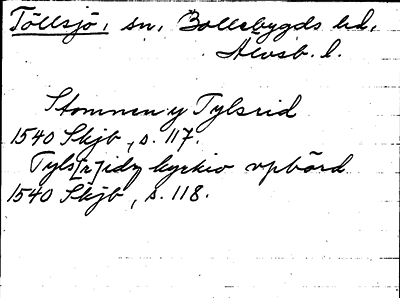 Töllsjö, sn, Bollebygds hd,
Älvsb. l.
Stomnen y Tylsrid
1540 Skjb, s. 117.
Tyls[r]idz kyrkio vpbörd
1540 Skjb, s. 118.